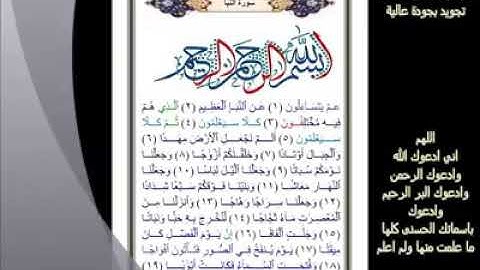 سورة النبأ
تجويد بجودة عالية
بسم الله الرحمن الرحيم
عَمَّ يَتَسَاءَلُونَ (١) عَنِ النَّبَإِ الْعَظِيمِ (٢) الَّذِي هُمْ
فِيهِ مُخْتَلِفُونَ (٣) كَلَّا سَيَعْلَمُونَ (٤) ثُمَّ كَلَّا
سَيَعْلَمُونَ (٥) أَلَمْ نَجْعَلِ الْأَرْضَ مِهَٰدًا (٦)
وَالْجِبَالَ أَوْتَادًا (٧) وَخَلَقْنَٰكُمْ أَزْوَٰجًا (٨) وَجَعَلْنَا
نَوْمَكُمْ سُبَاتًا (٩) وَجَعَلْنَا اللَّيْلَ لِبَاسًا (١٠) وَجَعَلْنَا
النَّهَارَ مَعَاشًا (١١) وَبَنَيْنَا فَوْقَكُمْ سَبْعًا شِدَادًا
(١٢) وَجَعَلْنَا سِرَاجًا وَهَّاجًا (١٣) وَأَنزَلْنَا مِنَ
الْمُعْصِرَٰتِ مَاءً ثَجَّاجًا (١٤) لِّنُخْرِجَ بِهِ حَبًّا وَنَبَاتًا
(١٥) وَجَنَّٰتٍ أَلْفَافًا (١٦) إِنَّ يَوْمَ الْفَصْلِ كَانَ
مِيقَٰتًا (١٧) يَوْمَ يُنفَخُ فِي الصُّورِ فَتَأْتُونَ أَفْوَاجًا
(١٨) وَفُتِحَتِ السَّمَاءُ فَكَانَتْ أَبْوَٰبًا (١٩)
اللهم
اني ادعوك الله
وادعوك الرحمن
وادعوك البر الرحيم
وادعوك
باسمائك الحسنى كلها
ما علمت منها ولم اعلم